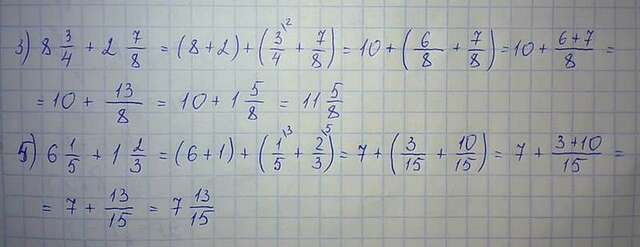 3) 8 3/4 + 2 7/8 = (8+2) + (3/4\2 + 7/8) = 10 + (6/8 + 7/8) = 10 + 6+7/8 =
= 10 + 13/8 = 10 + 1 5/8 = 11 5/8
5) 6 1/5 + 1 2/3 = (6+1) + (1/5\3 + 2/3\5) = 7 + (3/15 + 10/15) = 7 + 3+10/15 =
= 7 + 13/15 = 7 13/15